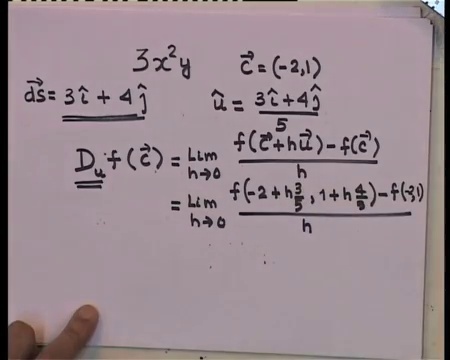 3x²y c⃗ = (-2,1)
d⃗s = 3î + 4ĵ û = (3î + 4ĵ)/5
D_u f(c⃗) = Lim h→0 (f(c⃗ + hu⃗) - f(c⃗))/h
= Lim h→0 (f(-2 + h 3/5, 1 + h 4/5) - f(-2,1))/h